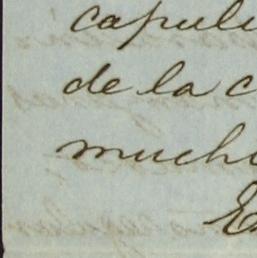 capuli
de la c
muchi
E